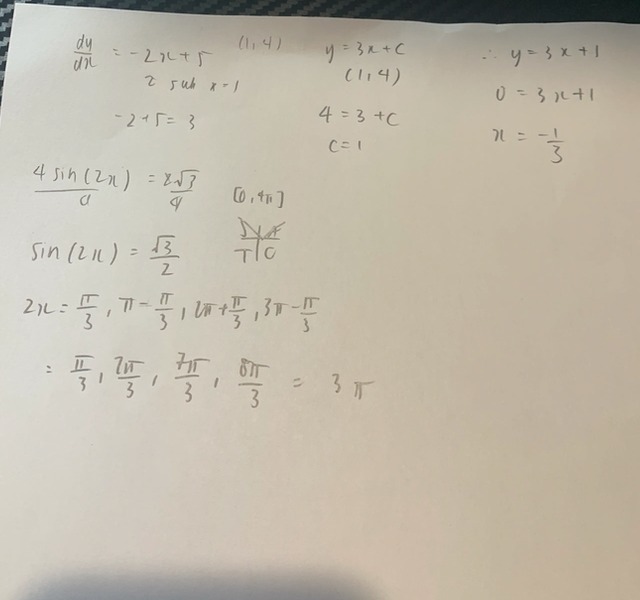 dy/dx = -2x + 5 (1, 4)
2 sub x = 1
-2 + 5 = 3
y = 3x + c
(1, 4)
4 = 3 + c
c = 1
∴ y = 3x + 1
0 = 3x + 1
x = -1/3
4 sin(2x)/4 = 2√3/4 [0, 4π]
sin(2x) = √3/2
S A
T C
2x = π/3, π - π/3, 2π + π/3, 3π - π/3
= π/3, 2π/3, 7π/3, 8π/3 = 3π